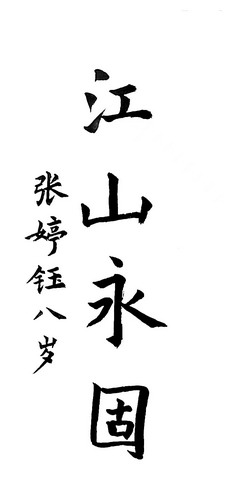 江山永固
张婷钰八岁